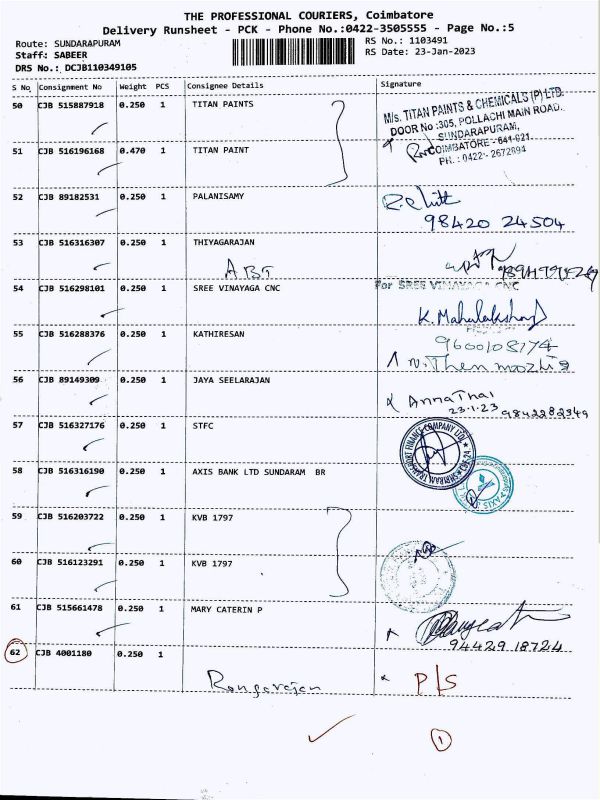 THE PROFESSIONAL COURIERS, Coimbatore
Delivery Runsheet - PCK - Phone No.:0422-3505555 - Page No.:5
Route: SUNDARAPURAM
RS No.: 1103491
Staff: SABEER
RS Date: 23-Jan-2023
DRS No.: DCJB110349105
S No Consignment No Weight PCS Consignee Details Signature
50 CJB 515887918 0.250 1 TITAN PAINTS
M/s. TITAN PAINTS & CHEMICALS (P) LTD.
DOOR No :305, POLLACHI MAIN ROAD.
SUNDARAPURAM,
COIMBATORE - 641 021.
PH. : 0422 - 2672094
51 CJB 516196168 0.470 1 TITAN PAINT
52 CJB 89182531 0.250 1 PALANISAMY
98420 24504
53 CJB 516316307 0.250 1 THIYAGARAJAN
ABT
54 CJB 516298101 0.250 1 SREE VINAYAGA CNC
For SREE VINAYAGA CNC
K. Mahalakshmi
55 CJB 516288376 0.250 1 KATHIRESAN
9600108174
N. Then mozhi
56 CJB 89149309 0.250 1 JAYA SEELARAJAN
Anna Thai
23.1.23 9842282349
57 CJB 516327176 0.250 1 STFC
58 CJB 516316190 0.250 1 AXIS BANK LTD SUNDARAM BR
59 CJB 516203722 0.250 1 KVB 1797
60 CJB 516123291 0.250 1 KVB 1797
61 CJB 515661478 0.250 1 MARY CATERIN P
94429 18724
62 CJB 4001180 0.250 1
Rangarajan
P/S
1